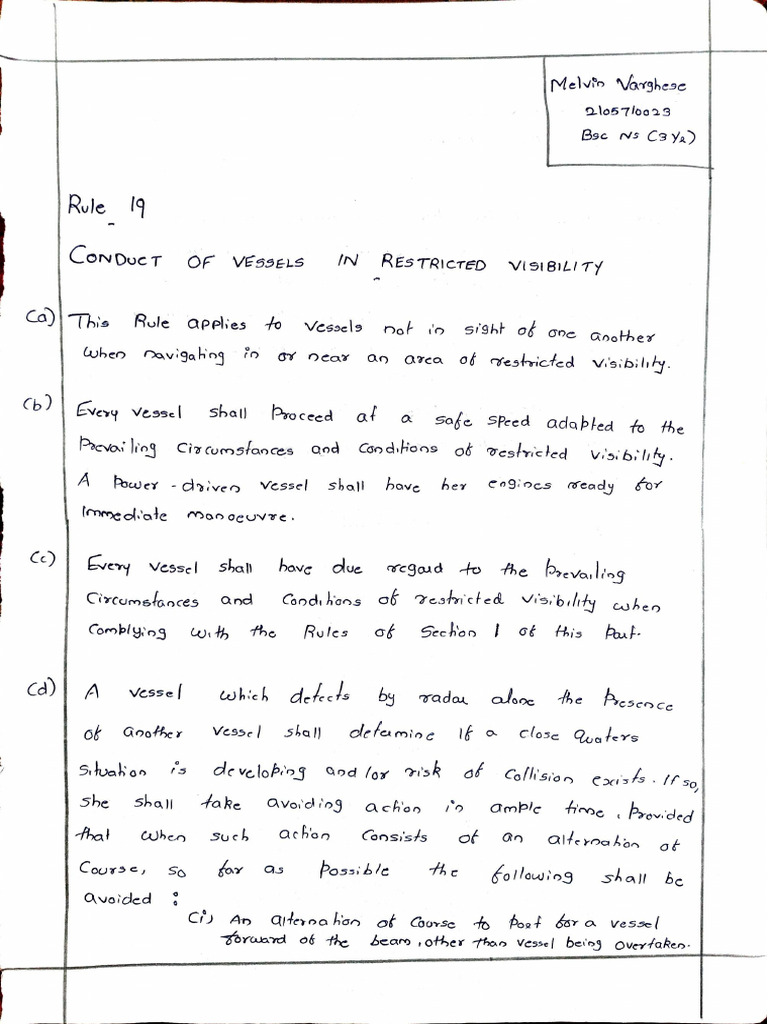 Melvin Varghese
2105710023
Bsc NS (3 Yr)
Rule 19
CONDUCT OF VESSELS IN RESTRICTED VISIBILITY
(a) This Rule applies to vessels not in sight of one another
when navigating in or near an area of restricted visibility.
(b) Every vessel shall Proceed at a safe speed adapted to the
Prevailing Circumstances and Conditions of restricted visibility.
A Power-driven vessel shall have her engines ready for
Immediate manoeuvre.
(c) Every vessel shall have due regard to the Prevailing
Circumstances and Conditions of restricted visibility when
Complying with the Rules of Section I of this Part.
(d) A vessel which detects by radar alone the Presence
of another vessel shall determine If a close Quaters
Situation is developing and/or risk of Collision exists. If so,
she shall take avoiding action in ample time, Provided
that when such action Consists of an alternation of
Course, so far as Possible the following shall be
avoided :
(i) An alternation of Course to Port for a vessel
forward of the beam, other than vessel being overtaken.